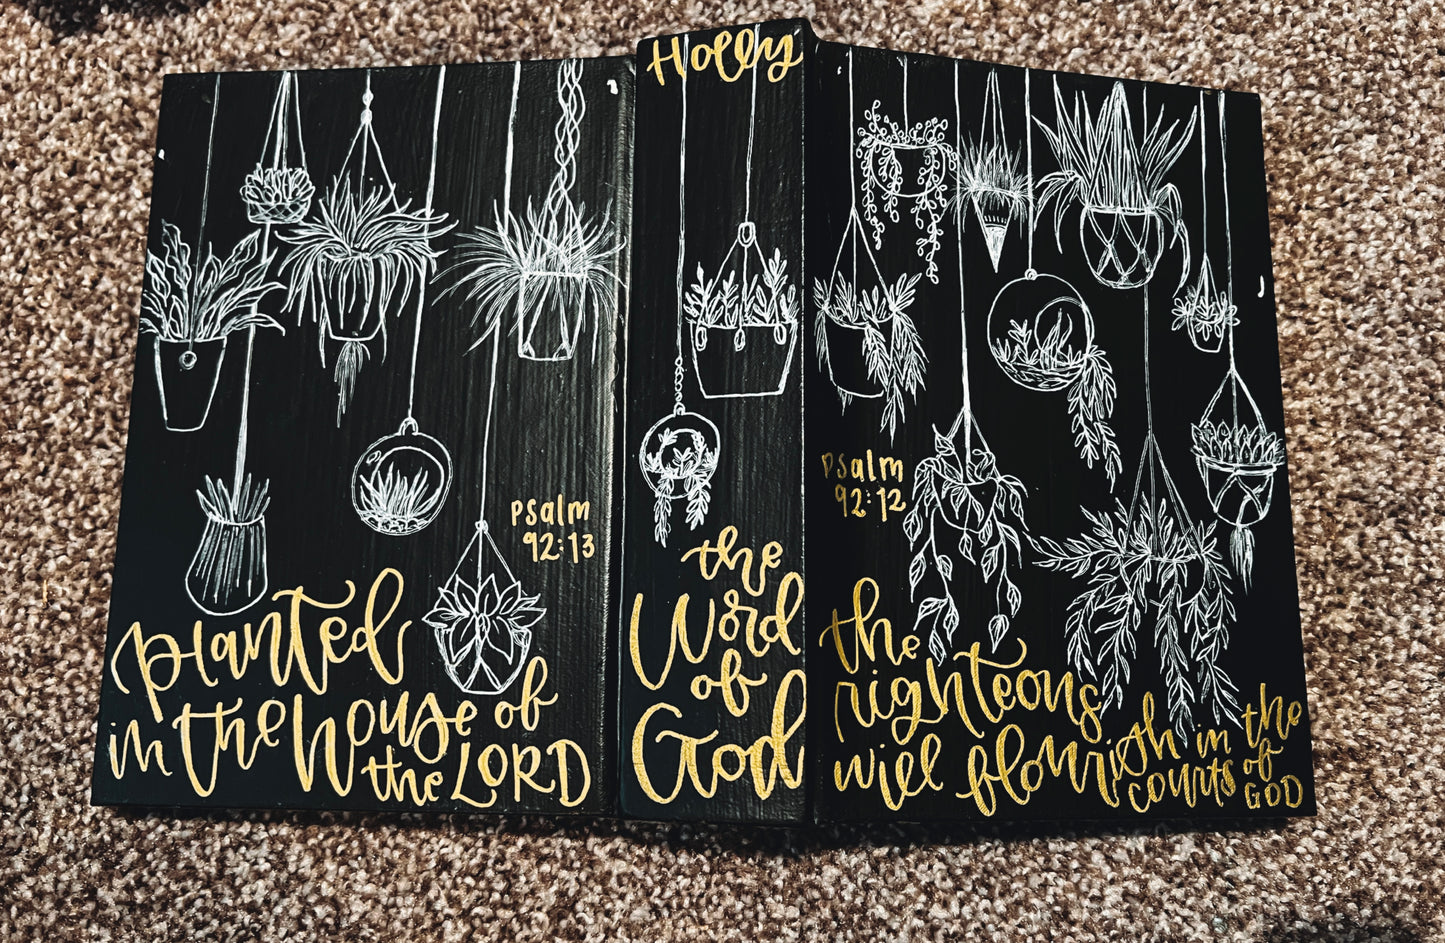 psalm
92:13
planted
in the house of
the LORD
Holly
the
Word
of
God
psalm
92:12
the
righteous
will flourish in the
courts of
GOD